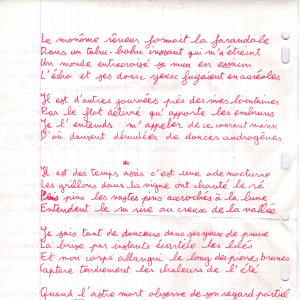 Le monôme rêveur formait la farandole
Dans un tohu-bohu incessant qui m'a étreint
Un monde entrecroisé se mua en essaim
L'écho et ses doux yeux fuyaient en auréoles
Il est d'autres journées près des rives lointaines
Par le flot délivré qu'apporte les embruns
Je l'entends m'appeler de ce courant marin
D'où dansent dénudées de douces androgènes
*
Il est des temps assis c'est une ode nocturne
Les grillons dans la vigne ont chanté le ré
pins les vastes pins accrochés à la lune
Entendent le rire au creux de la vallée
Je sais tant de douceurs dans ses yeux de prune
La brise par instants écartèle les lilas
Et mon corps allangui le long des pierres brunes
Capture tendrement les chaleurs de l'été
Quand l'astre mort de son regard partiel